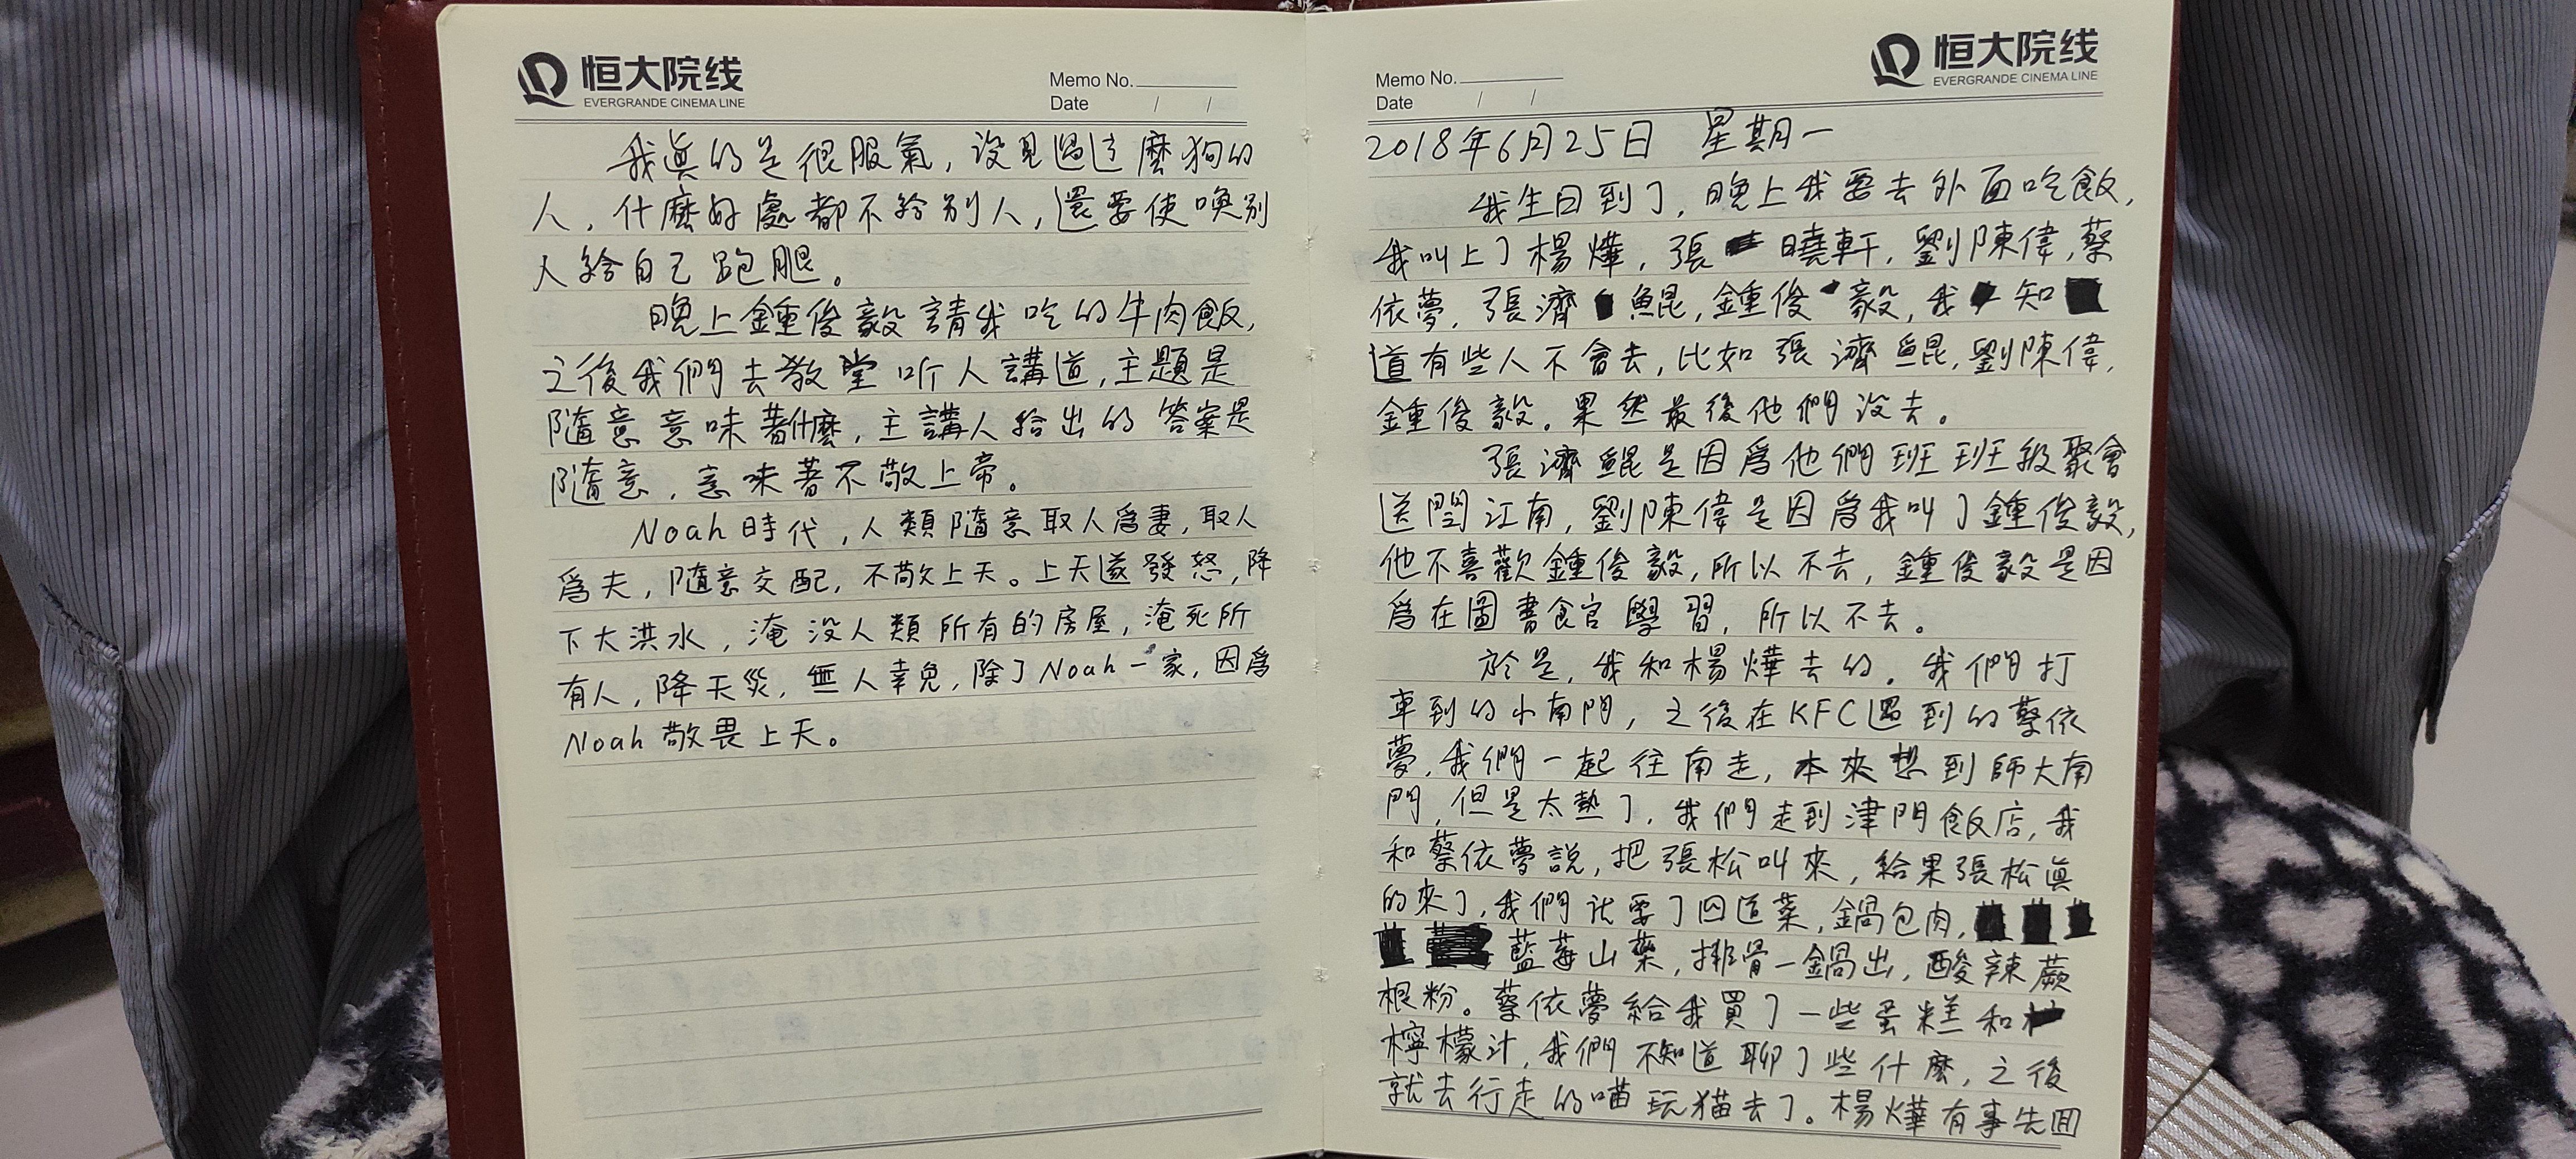 恒大院线
EVERGRANDE CINEMA LINE
Memo No.
Date / /
我眞的是很服氣，没見過這麼狗的
人，什麼好處都不給别人，還要使喚别
人給自己跑腿。
晚上鍾俊毅請我吃的牛肉飯，
之後我們去教堂听人講道，主題是
隨意意味著什麼，主講人给出的答案是
隨意，意味著不敬上帝。
Noah時代，人類隨意取人爲妻，取人
爲夫，隨意交配，不敬上天。上天遂發怒，降
下大洪水，淹没人類所有的房屋，淹死所
有人，降天災，無人幸免，除了Noah一家，因爲
Noah敬畏上天。
恒大院线
EVERGRANDE CINEMA LINE
Memo No.
Date / /
2018年6月25日 星期一
我生日到了，晚上我要去外面吃飯，
我叫上了楊燁，張曉軒，劉陳偉，蔡
依夢，張濟鯤，鍾俊毅，我知
道有些人不會去，比如張濟鯤，劉陳偉，
鍾俊毅。果然最後他們没去。
張濟鯤是因爲他們班班级聚會
送閆江南，劉陳偉是因爲我叫了鍾俊毅，
他不喜歡鍾俊毅，所以不去，鍾俊毅是因
爲在圖書館學習，所以不去。
於是，我和楊燁去的。我們打
車到的小南門，之後在KFC遇到的蔡依
夢，我們一起往南走，本來想到師大南
門，但是太熱了，我們走到津門飯店，我
和蔡依夢説，把張松叫來，給果張松眞
的來了，我們就要了四道菜，鍋包肉，
藍莓山藥，排骨一鍋出，酸辣蕨
根粉。蔡依夢給我買了一些蛋糕和
檸檬汁，我們不知道聊了些什麼，之後
就去行走的喵玩猫去了。楊燁有事先回